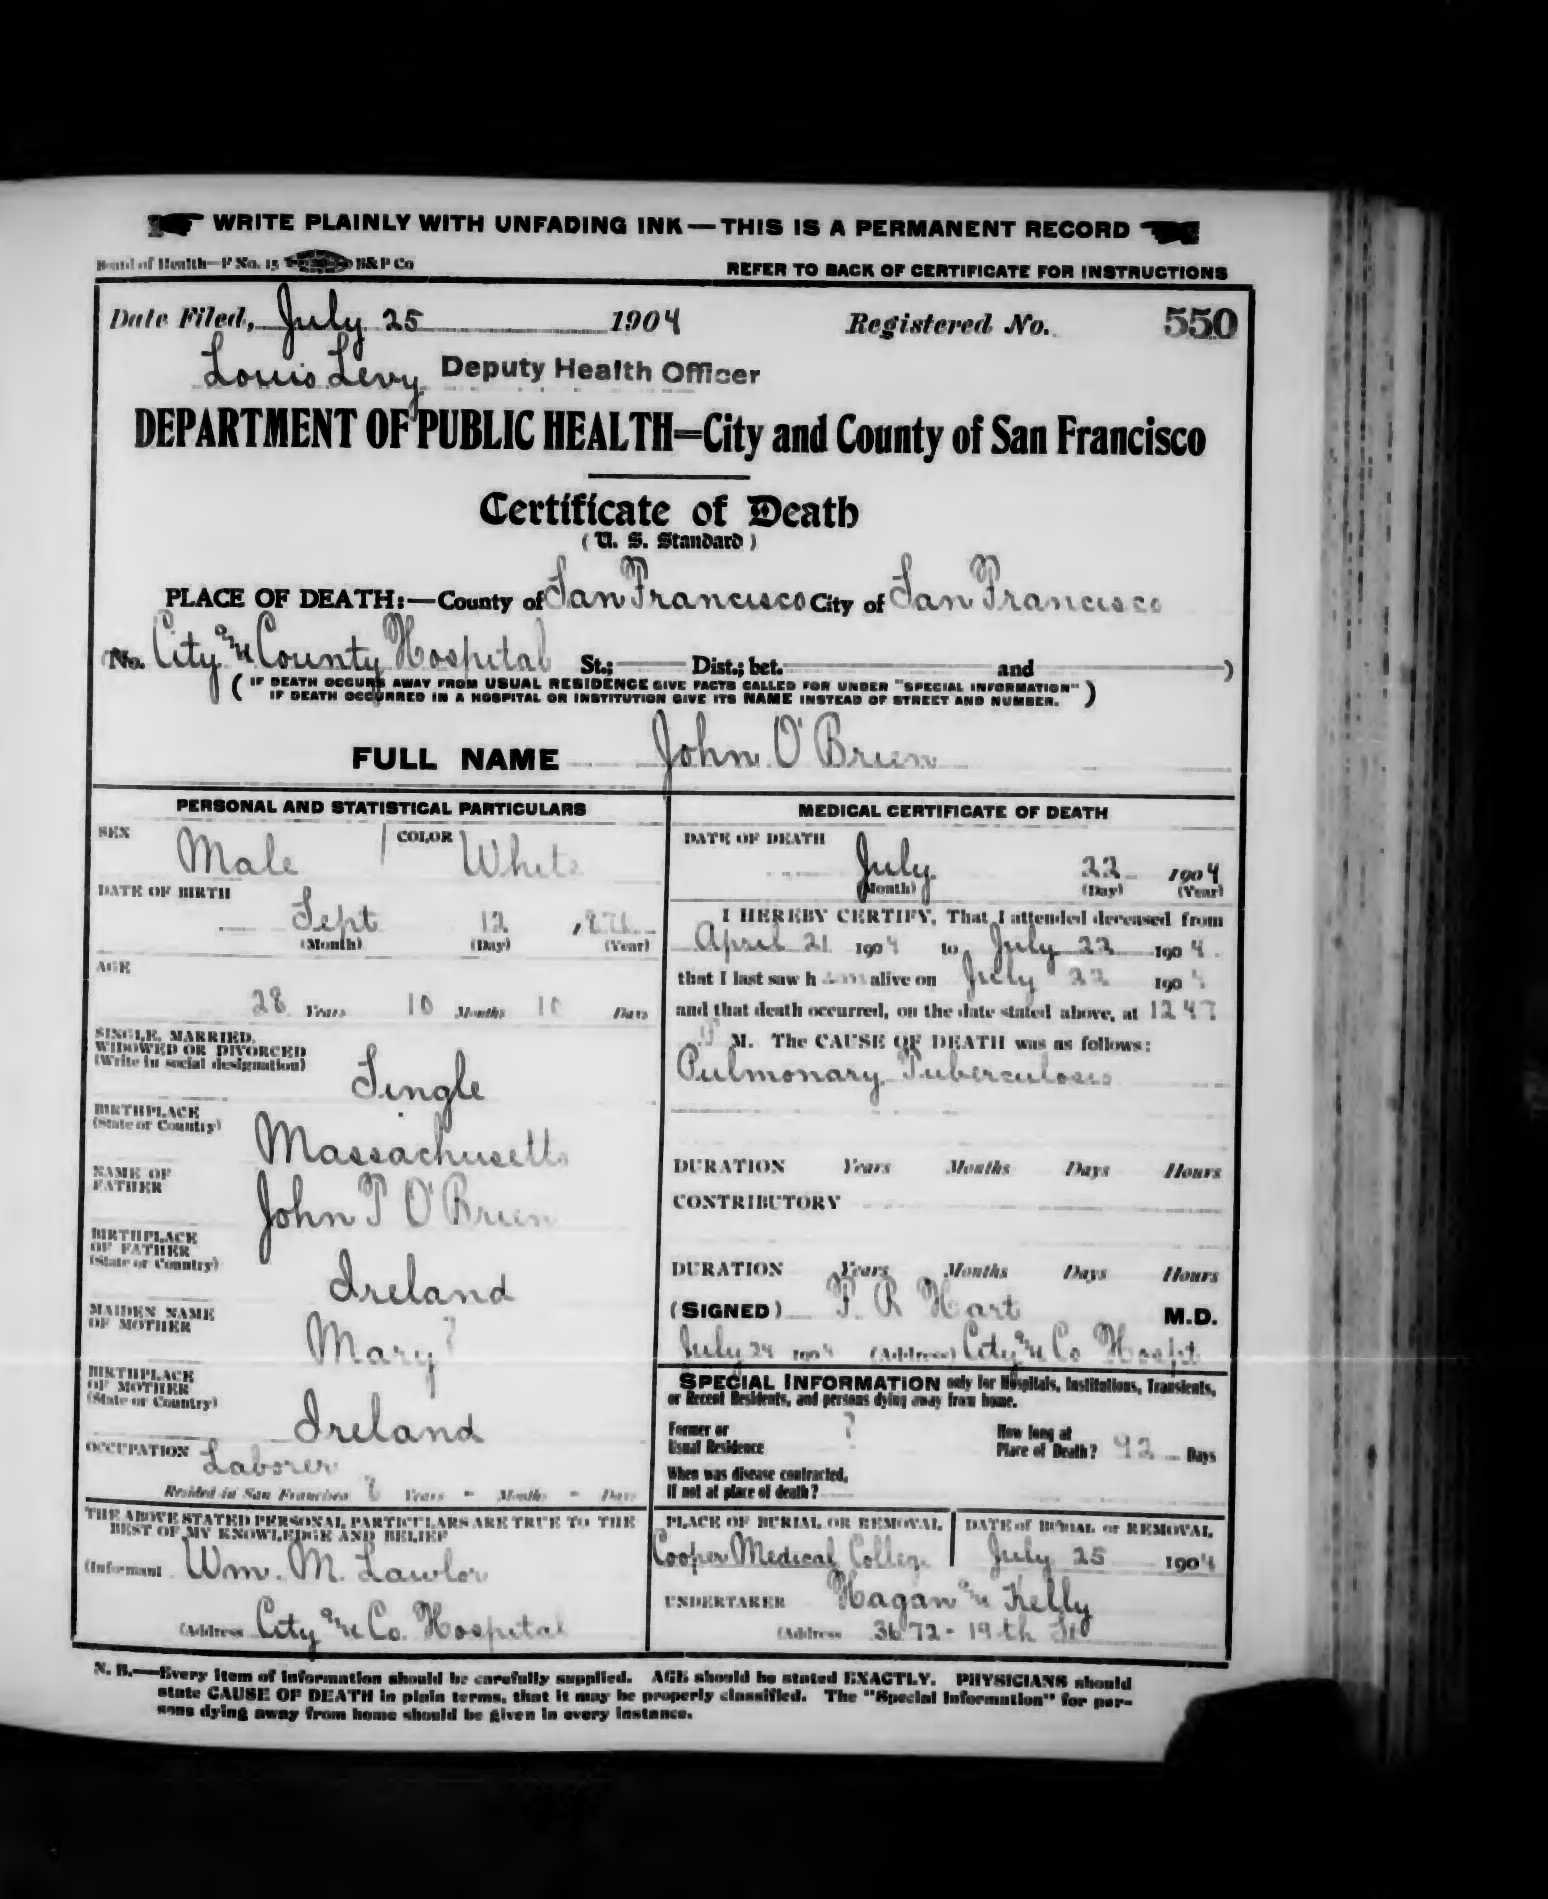 WRITE PLAINLY WITH UNFADING INK—THIS IS A PERMANENT RECORD
Board of Health—F No. 15 B&P Co
REFER TO BACK OF CERTIFICATE FOR INSTRUCTIONS
Date Filed, July 25 1904 Registered No. 550
Louis Levy Deputy Health Officer
DEPARTMENT OF PUBLIC HEALTH=City and County of San Francisco
Certificate of Death
(U. S. Standard)
PLACE OF DEATH:—County of San Francisco City of San Francisco
(No. City and County Hospital St.; Dist.; bet. and )
(IF DEATH OCCURS AWAY FROM USUAL RESIDENCE GIVE FACTS CALLED FOR UNDER "SPECIAL INFORMATION"
IF DEATH OCCURRED IN A HOSPITAL OR INSTITUTION GIVE ITS NAME INSTEAD OF STREET AND NUMBER.)
FULL NAME John O'Brien
PERSONAL AND STATISTICAL PARTICULARS
SEX Male COLOR White
DATE OF BIRTH
Sept 12
(Month) (Day) (Year)
AGE
28 Years 10 Months 10 Days
SINGLE, MARRIED,
WIDOWED OR DIVORCED
(Write in social designation)
Single
BIRTHPLACE
(State or Country)
Massachusetts
NAME OF
FATHER
John P O'Brien
BIRTHPLACE
OF FATHER
(State or Country)
Ireland
MAIDEN NAME
OF MOTHER
Mary ?
BIRTHPLACE
OF MOTHER
(State or Country)
Ireland
OCCUPATION Laborer
Resided in San Francisco Years - Months - Days
THE ABOVE STATED PERSONAL PARTICULARS ARE TRUE TO THE
BEST OF MY KNOWLEDGE AND BELIEF
(Informant Wm. M. Lawlor
(Address City and Co. Hospital
MEDICAL CERTIFICATE OF DEATH
DATE OF DEATH
July 22 1904
(Month) (Day) (Year)
I HEREBY CERTIFY, That I attended deceased from
April 21 1904 to July 22 1904
that I last saw h im alive on July 22 1904
and that death occurred, on the date stated above, at 12 47
P M. The CAUSE OF DEATH was as follows:
Pulmonary Tuberculosis
DURATION Years Months Days Hours
CONTRIBUTORY
DURATION Years Months Days Hours
(SIGNED) P. R Hart M.D.
July 24 1904 (Address) City and Co Hospt
SPECIAL INFORMATION only for Hospitals, Institutions, Transients,
or Recent Residents, and persons dying away from home.
Former or
Usual Residence ?
How long at
Place of Death? 92 Days
When was disease contracted,
If not at place of death?
PLACE OF BURIAL OR REMOVAL
Cooper Medical College
DATE of BURIAL or REMOVAL
July 25 1904
UNDERTAKER Hagan and Kelly
(Address 3672 - 19th St
N. B.—Every item of information should be carefully supplied. AGE should be stated EXACTLY. PHYSICIANS should
state CAUSE OF DEATH in plain terms, that it may be properly classified. The "Special Information" for per-
sons dying away from home should be given in every instance.